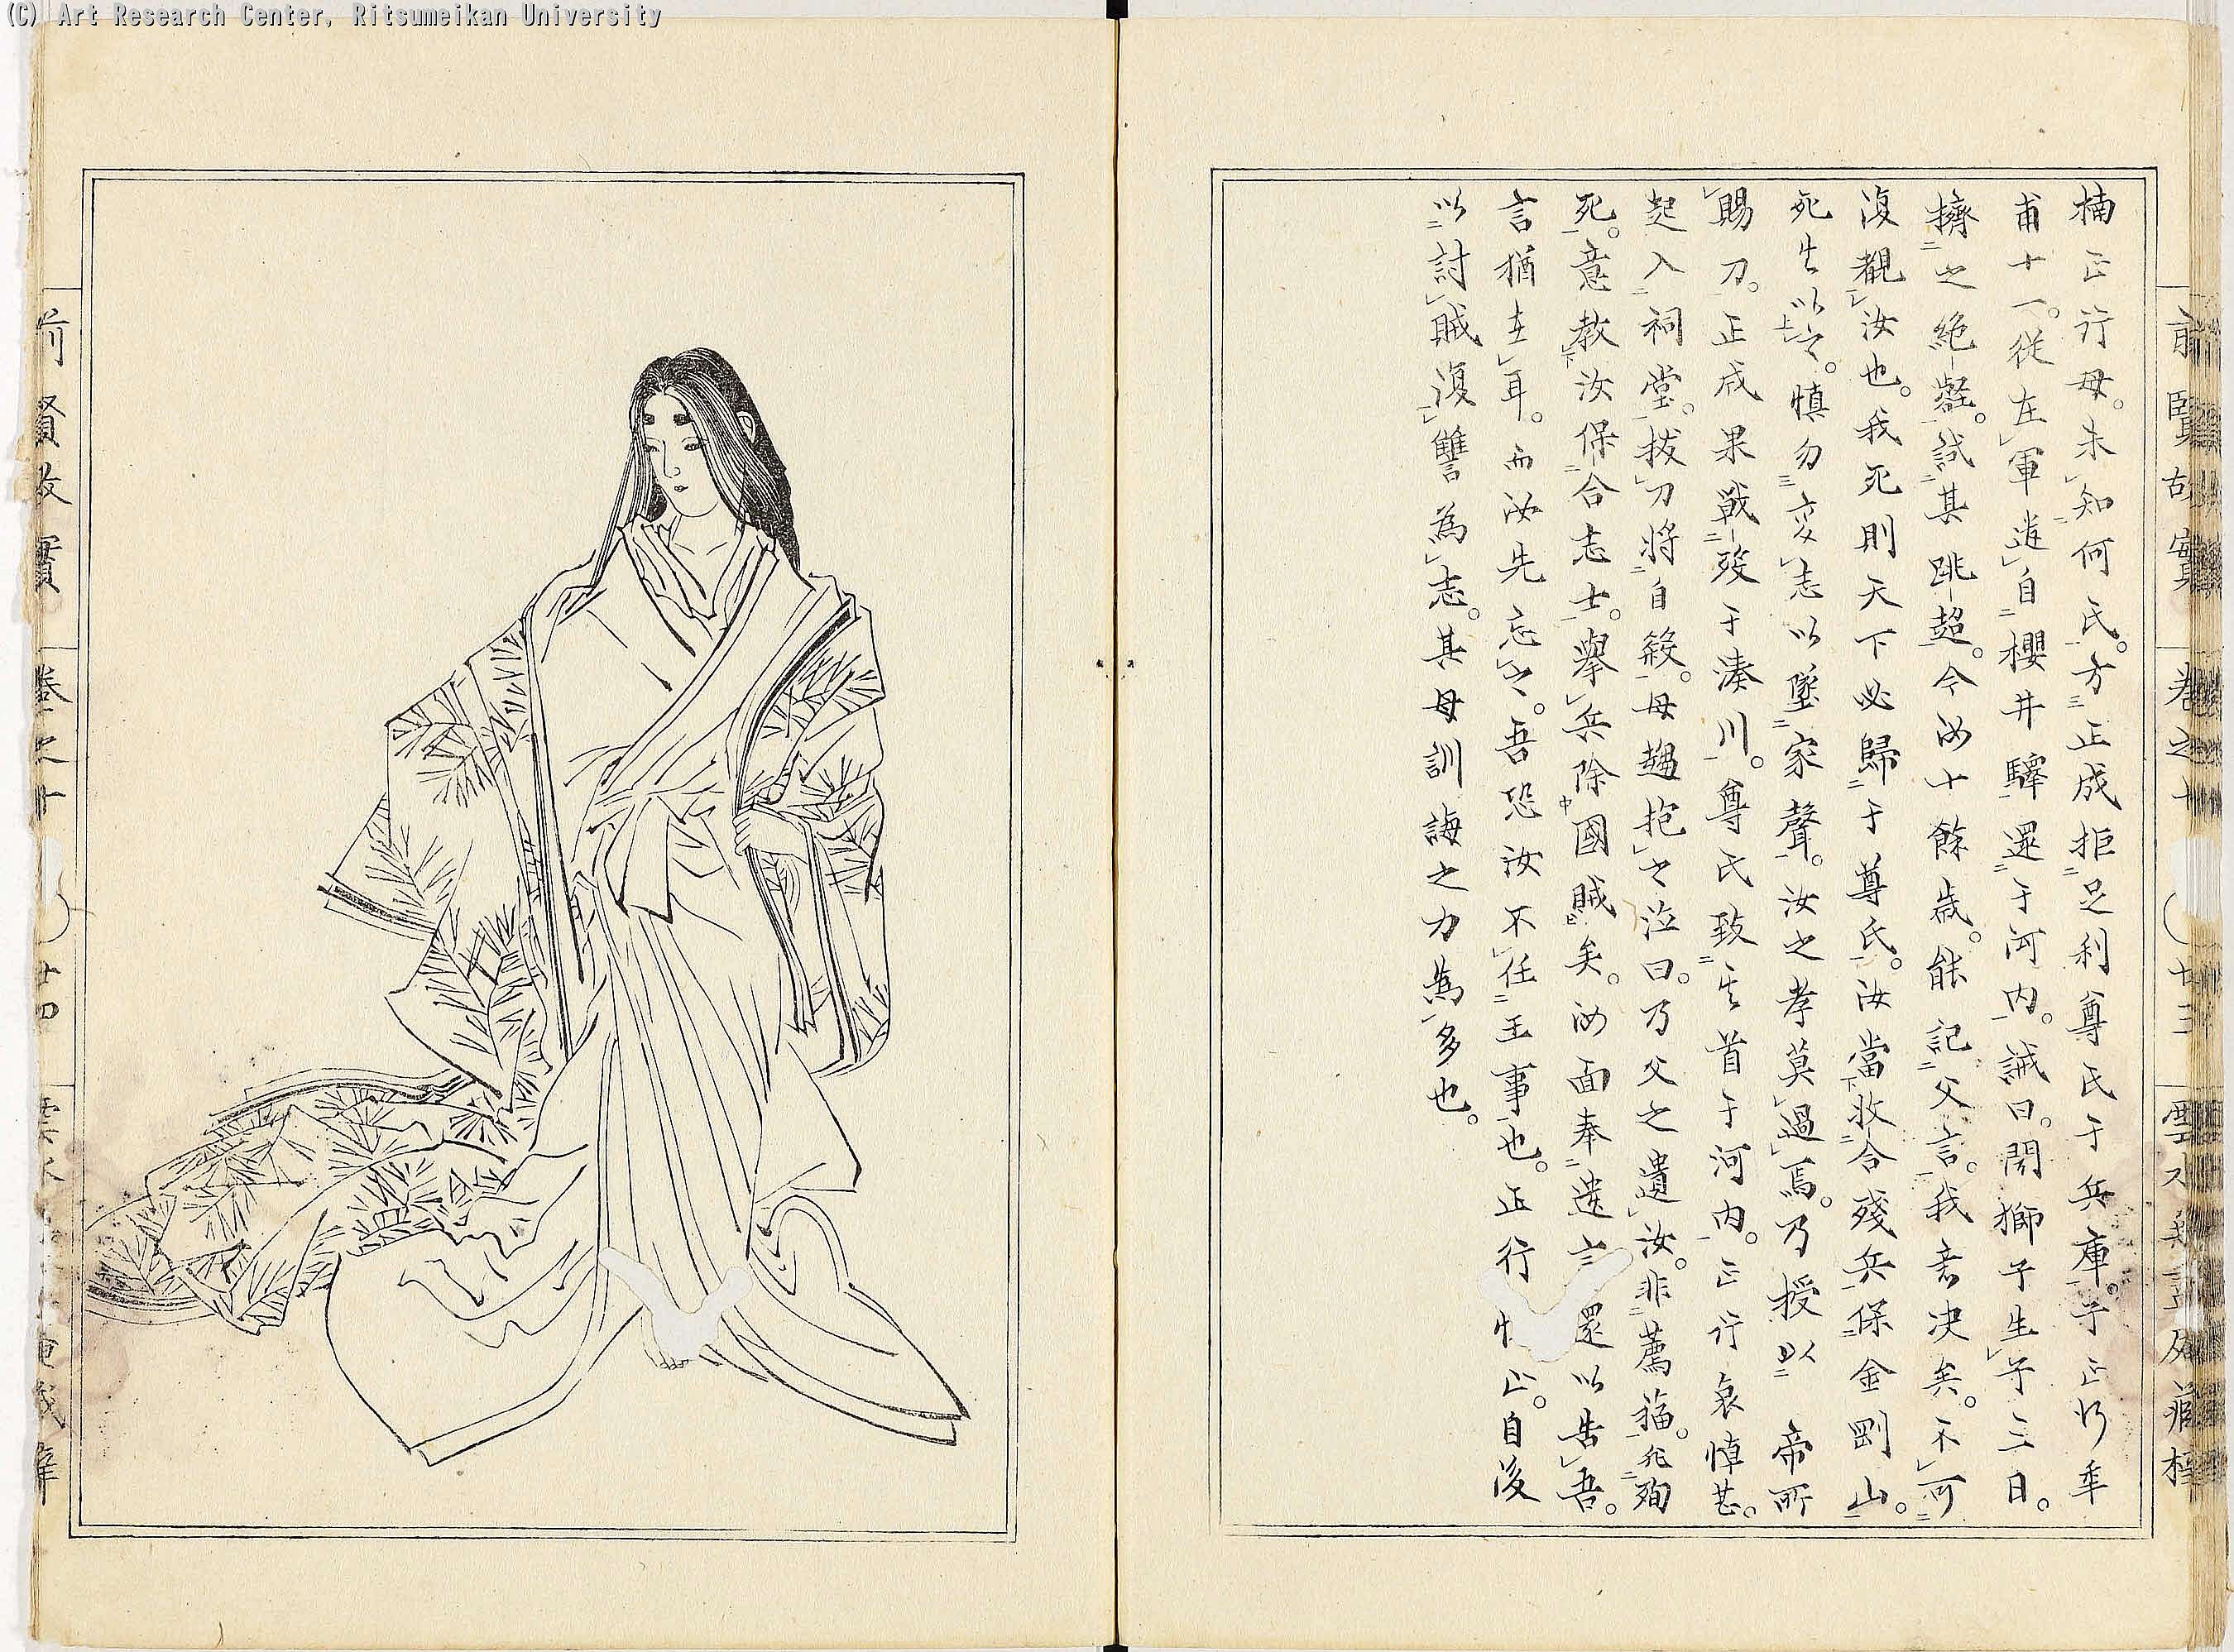 (C) Art Research Center, Ritsumeikan University
前賢故實 卷之十 廿三
楠正行母。未知何氏。方正成拒足利尊氏于兵庫。子正行年
甫十一。從在軍道自櫻井驛還于河内。誡曰。聞獅子生子三日。
擠之絶壑。試其跳超。今汝十餘歳。能記父言。我意決矣。不可
復覩汝也。我死則天下必歸于尊氏。汝當收合殘兵保金剛山。
死生以之。慎勿変志以墜家聲。汝之孝莫過焉。乃授以 帝所
賜刀。正成果戰歿于湊川。尊氏致其首于河内。正行哀悼甚。
起入祠堂。拔刀將自殺。母趨抱之泣曰。乃父之遺汝。非薦福。死殉
死。意教汝保合志士。擧兵除國賊矣。汝面奉遺言還以告吾。
言猶在耳。而汝先忘之。吾恐汝不任王事也。正行 止。自後
以討賊復讐為志。其母訓誨之力為多也。
前賢故實 卷之十 廿四